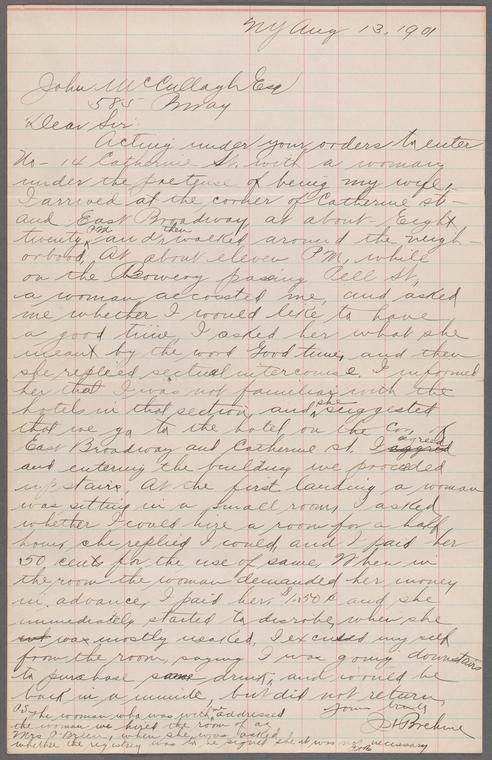 NY Aug 13, 1901
John McCullagh Esq
585 Bway
Dear Sir
Acting under your orders to enter
No- 14 Catherine St. with a woman
under the pretense of being my wife,
I arrived at the corner of Catherine st-
and East Broadway at about Eight
twenty PM and then walked around the neigh-
orbood, At about eleven PM, while
on the Bowery passing Pell St,
a woman accosted me, and asked
me whether I would like to have
a good time, I asked her what she
meant by the word Good time, and then
she replied sectual intercourse I informed
her that I was not familiar with the
hotels in that section, and she suggested
that we go to the hotel on the Cor of
East Broadway and Catherine st. I agreed
and entering the building we proceded
upstairs. At the first landing a woman
was sitting in a small room, I asked
whether I could hire a room for a half
hour, she replied I could, and I paid her
50 cents for the use of same. When in
the room the woman demanded her money
in advance, I paid her $1.50 and she
immediately started to disrobe, when she
was mostly naked, I excused my self
from the room, saying I was going downstairs
to purchase some drink, and would be
back in a minute, but did not return
yours truly
PS. The woman who was with addressed
the woman we hired the room of as
Mrs O'Brien, when she was asked
whether the registry was to be signed she said it was not necessary